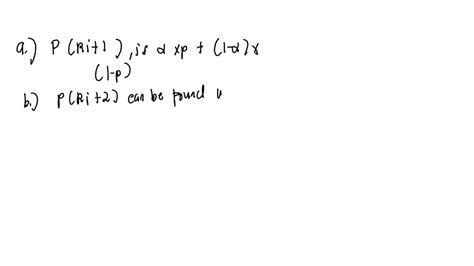 a.) P(Ri+1), is α xp + (1-α) x
(1-p)
b.) P(Ri+2) can be found